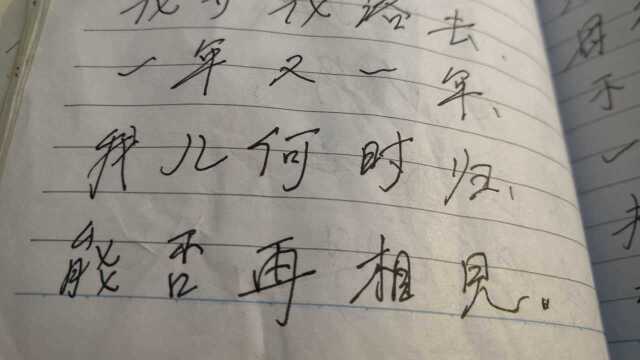 去
一年又一年、
我儿何时归、
能否再相见。